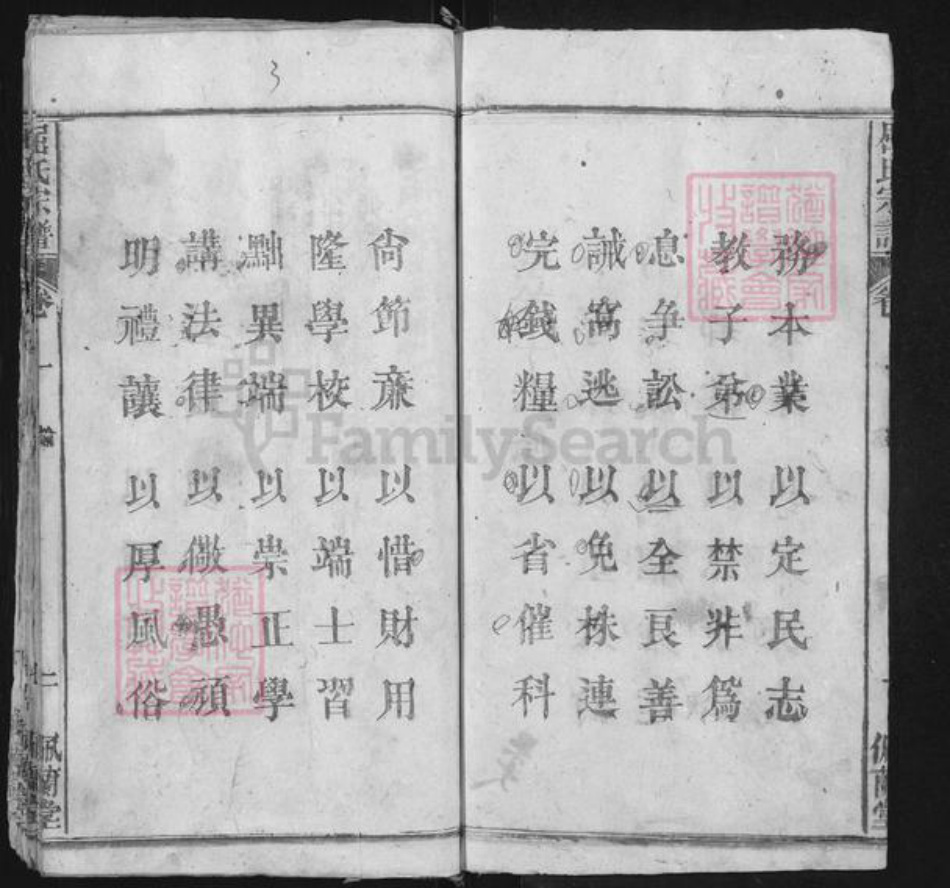 務本業以定民志
教子弟以禁非爲
息争訟以全良善
誡窩逃以免株連
完錢糧以省催科
尚節亷以惜財用
隆學校以端士習
黜異端以崇正學
講法律以儆愚頑
明禮讓以厚風俗
屈氏宗譜
卷一
佩蘭堂
3
FamilySearch